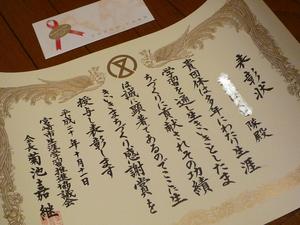 表彰状
殿
貴団体は多年にわたり生涯
学習を通し生き生きとしたま
ちづくりに貢献されその功績
は誠に顕著であるのでここに生
き生きまちづくり感謝賞を
授与し表彰します
平成二十年十月十一日
宮古市生涯学習推進協議会
会長 菊池嘉継